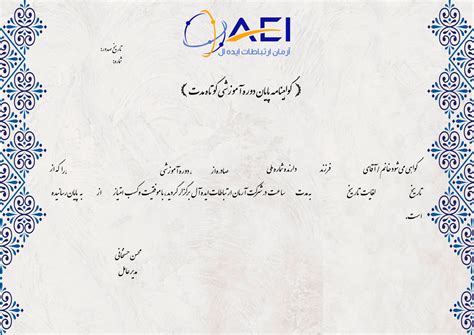 AEI
آرمان ارتباطات ایده آل
تاریخ صدور:
شماره:
﴿ گواهینامه پایان دوره آموزشی کوتاه مدت ﴾
گواهی می شود خانم / آقای فرزند دارنده شماره ملی صادره از ، دوره آموزشی را که از
تاریخ لغایت تاریخ به مدت ساعت در شرکت آرمان ارتباطات ایده آل برگزار گردید، با موفقیت و کسب امتیاز از به پایان رسانیده
است.
محسن
مدیرعامل